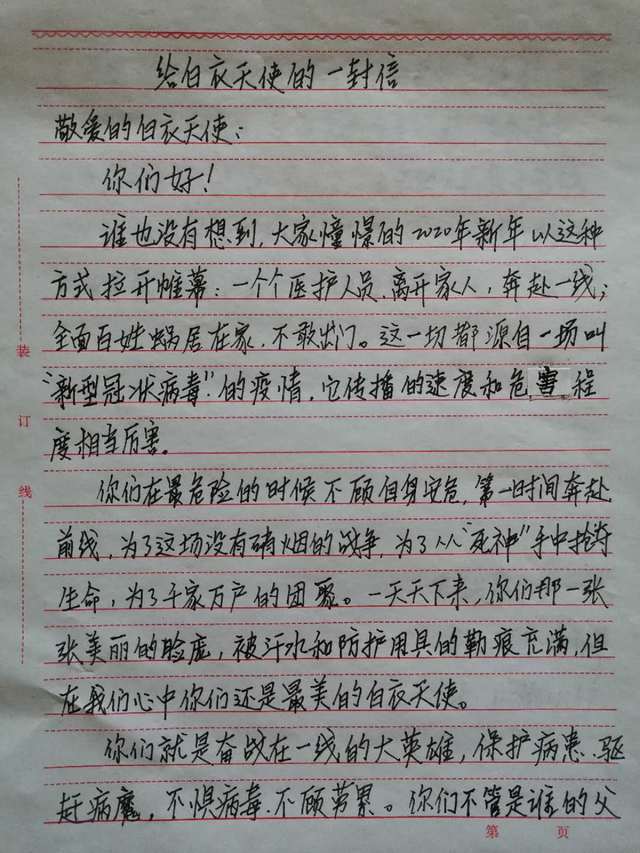 给白衣天使的一封信
敬爱的白衣天使：
你们好！
谁也没有想到，大家憧憬的2020年新年以这种
方式拉开帷幕：一个个医护人员、离开家人，奔赴一线；
全面百姓蜗居在家、不敢出门。这一切都源自一场叫
“新型冠状病毒”的疫情，它传播的速度和危害程
度相当厉害。
你们在最危险的时候不顾自身安危，第一时间奔赴
前线，为了这场没有硝烟的战争，为了从“死神”手中抢夺
生命，为了千家万户的团聚。一天天下来，你们那一张
张美丽的脸庞，被汗水和防护用具的勒痕充满，但
在我们心中你们还是最美的白衣天使。
你们就是奋战在一线的大英雄，保护病患、驱
赶病魔，不惧病毒、不顾劳累。你们不管是谁的父
装
订
线
第 页